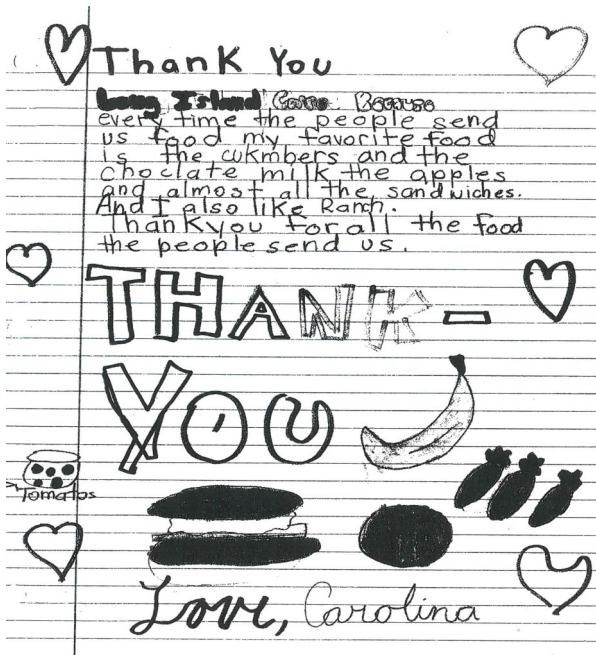 Thank You
Long Island Cares Because
every time the people send
us food my favorite food
is the cukmbers and the
choclate milk the apples
and almost all the sandwiches.
And I also like Ranch.
Thankyou for all the food
the people send us.
THANK-
YOU
Tomatos
Love, Carolina